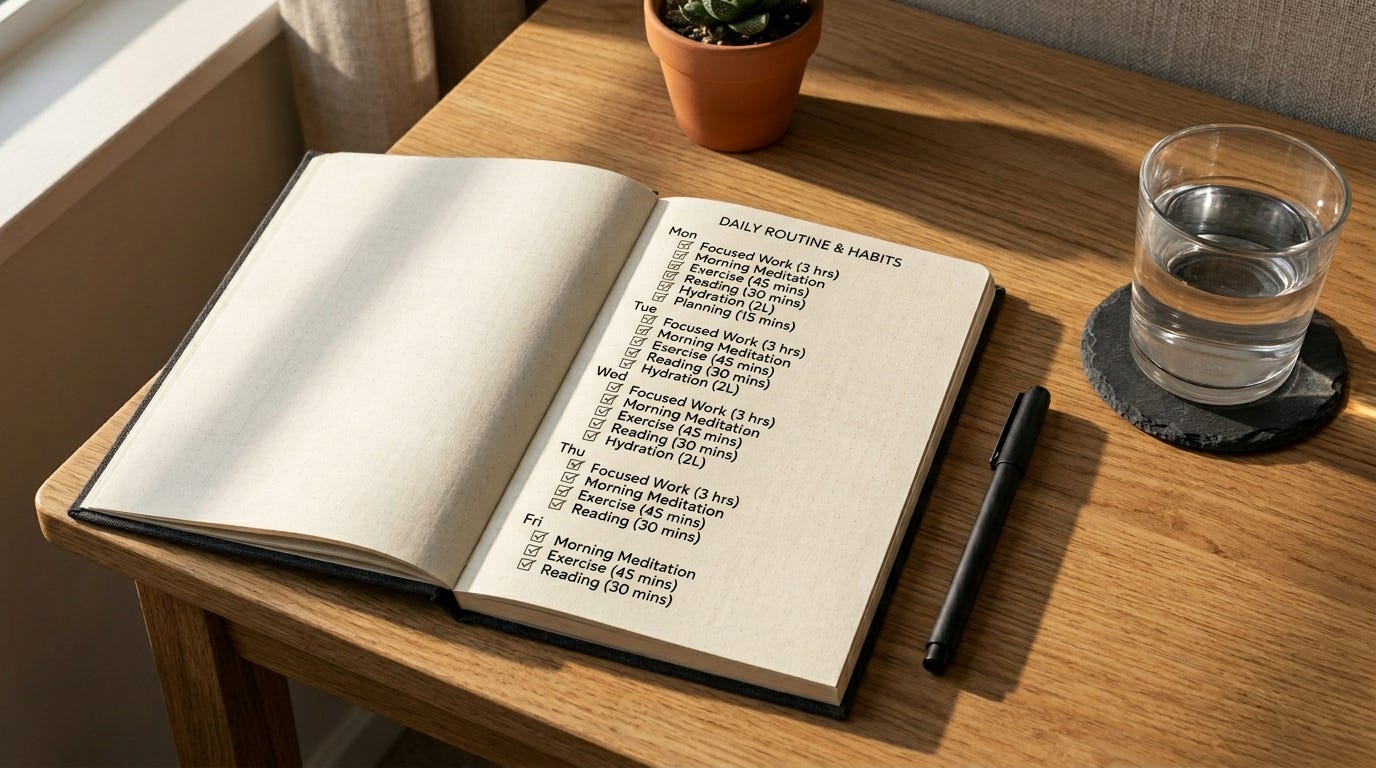 DAILY ROUTINE & HABITS
Mon
Focused Work (3 hrs)
Morning Meditation
Exercise (45 mins)
Reading (30 mins)
Hydration (2L)
Planning (15 mins)
Tue
Focused Work (3 hrs)
Morning Meditation
Esercise (45 mins)
Reading (30 mins)
Hydration (2L)
Wed
Focused Work (3 hrs)
Morning Meditation
Exercise (45 mins)
Reading (30 mins)
Hydration (2L)
Thu
Focused Work (3 hrs)
Morning Meditation
Exercise (45 mins)
Reading (30 mins)
Fri
Morning Meditation
Exercise (45 mins)
Reading (30 mins)